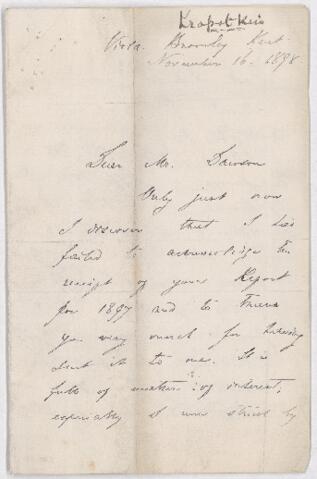 Kropotkin
Viola. Bromley Kent.
November 16. 1898
Dear Mr. Dawson
Only just now
I discover that I had
failed to acknowledge the
receipt of your Report
for 1897 and to thank
you very much for having
sent it to me. It is
full of matter of interest,
especially I was struck by